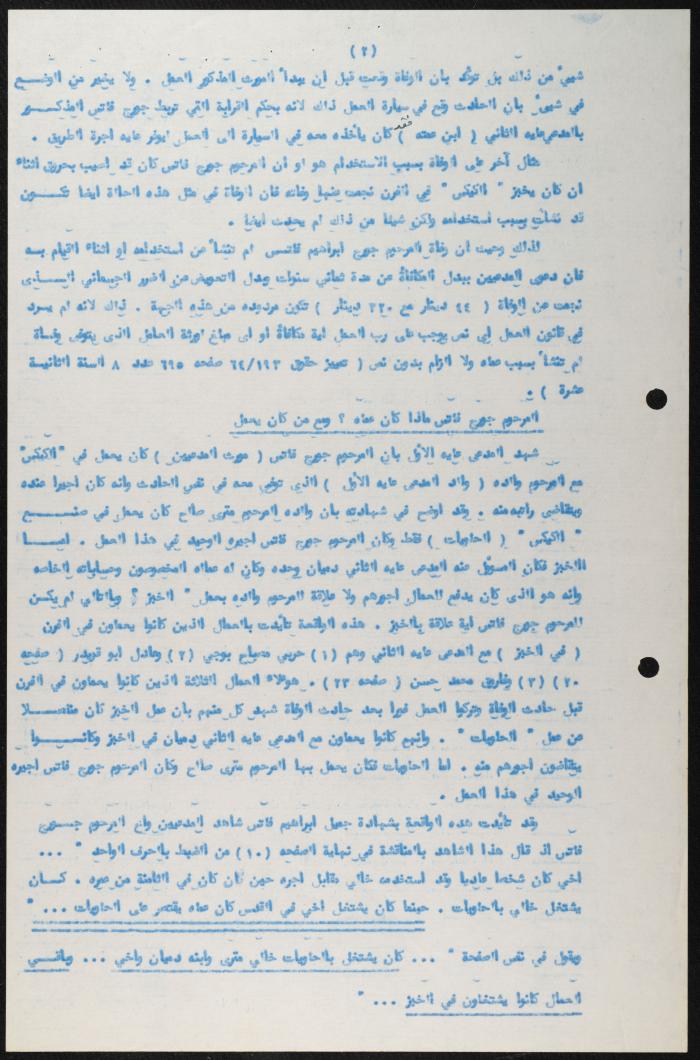 (٢)
شيئ من ذلك بل تؤكد بان الوفاة وقعت قبل ان يبدأ المورث المذكور العمل . ولا يغير من الوضع
في شيئ بان الحادث وقع في سيارة العمل ذلك لانه بحكم القرابة التي تربط جورج فاتس المذكور
بالمدعى عليه الثاني ( ابن عمته ) فقد كان يأخذه معه في السيارة الى العمل ليوفر عليه اجرة الطريق .
مثال آخر على الوفاة بسبب الاستخدام هو لو ان المرحوم جورج فاتس كان قد اصيب بحريق اثناء
ان كان يخبز " الكيكس " في الفرن نجمت عنها وفاته فان الوفاة في مثل هذه الحالة ايضا تكون
قد نشأت بسبب استخدامه ولكن شيئا من ذلك لم يحدث ايضا .
لذلك وحيث ان وفاة المرحوم جورج ابراهيم فاتس لم تنشأ عن استخدامه او اثناء القيام به
فان دعوى المدعيين ببدل المكافأة عن مدة ثماني سنوات وبدل التعويض عن الضرر الجسماني الذي
نجمت عن الوفاة ( ٤٤ دينار مع ٢٢٠ دينار ) تكون مردوده من هذه الجهة . ذلك لانه لم يرد
في قانون العمل اي نص يوجب على رب العمل اية مكافأة او اي مبلغ لورثة العامل الذي يتوفى وفاة
لم تنشأ بسبب عمله ولا الزام بدون نص ( تمييز حقوق ٦٤/١٩٣ صفحه ٦٩٥ عدد ٨ السنة الثانية
عشرة ) .
المرحوم جورج فاتس ماذا كان عمله ؟ ومع من كان يعمل
شهد المدعى عليه الاول بان المرحوم جورج فاتس ( مورث المدعيين ) كان يعمل في " الكيكس "
مع المرحوم والده ( والد المدعى عليه الاول ) الذي توفي معه في نفس الحادث وانه كان اجيرا عنده
ويتقاضى راتبه منه . وقد اوضح في شهادته بان والده المرحوم متري صالح كان يعمل في صنع
" الكيكس " ( الحلويات ) فقط وكان المرحوم جورج فاتس اجيره الوحيد في هذا العمل . اما
الخبز فكان المسؤول عنه المدعى عليه الثاني دميان وحده وكان له عماله المخصوصون وحساباته الخاصه
وانه هو الذي كان يدفع للعمال اجورهم ولا علاقة للمرحوم والده بعمل " الخبز " وبالتالي لم يكن
للمرحوم جورج فاتس اية علاقة بالخبز . هذه الواقعة تأيدت بالعمال الذين كانوا يعملون في الفرن
( في الخبز ) مع المدعى عليه الثاني وهم (١) حربي مصباح بوجي (٢) وعادل ابو قويدر ( صفحه
٢٠ ) (٣) وفاروق محمد حسن ( صفحه ٢٣ ) . هؤلاء العمال الثلاثة الذين كانوا يعملون في الفرن
قبل حادث الوفاة وتركوا العمل فورا بعد حادث الوفاة شهد كل منهم بان عمل الخبز كان منفصلا
عن عمل " الحلويات " . وانهم كانوا يعملون مع المدعى عليه الثاني دميان في الخبز وكانوا
يتقاضون اجورهم منه . اما الحلويات فكان يعمل بها المرحوم متري صالح وكان المرحوم جورج فاتس اجيره
الوحيد في هذا العمل .
وقد تأيدت هذه الواقعة بشهادة جميل ابراهيم فاتس شاهد المدعيين واخ المرحوم جورج
فاتس اذ قال هذا الشاهد بالمناقشة في نهاية الصفحه (١٠) من الضبط بالحرف الواحد " ...
اخي كان شخصا عاديا وقد استخدمه خالي مقابل اجره حين كان في الثامنة من عمره . كان
يشتغل خالي بالحلويات . حينما كان يشتغل اخي في القدس كان عمله يقتصر على الحلويات ... "
ويقول في نفس الصفحة " ... كان يشتغل بالحلويات خالي متري وابنه دميان واخي ... وباقي
العمال كانوا يشتغلون في الخبز ... "